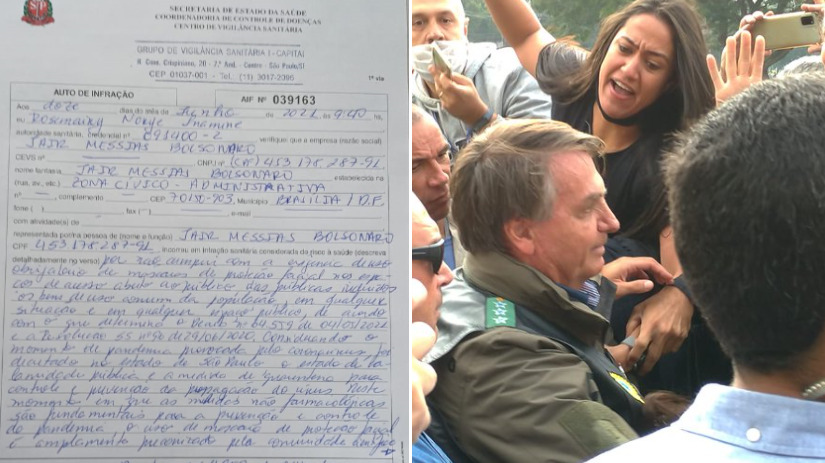 SECRETARIA DE ESTADO DA SAÚDE
COORDENADORIA DE CONTROLE DE DOENÇAS
CENTRO DE VIGILÂNCIA SANITÁRIA
GRUPO DE VIGILÂNCIA SANITÁRIA I - CAPITAL
R. Cons. Crispiniano, 20 - 7.º And. - Centro - São Paulo/SP
CEP 01037-001 - Tel.: (11) 3017-2396
1ª via
AUTO DE INFRAÇÃO AIF Nº 039163
Aos doze dias do mês de Junho de 2021 às 9:40 hs,
eu Rosemairy
autoridade sanitária, credencial nº 691400-2 verifiquei que a empresa (razão social)
JAIR MESSIAS BOLSONARO
CEVS nº CNPJ nº (CPF) 453 178 287-91
nome fantasia JAIR MESSIAS BOLSONARO estabelecida na
(rua, av., etc.) ZONA CIVICO - ADMINISTRATIVA
nº complemento CEP 70150-903, Município BRASILIA / D.F.
fone ( ) fax ( ) e-mail
com atividade(s) de
representada por/na pessoa de (nome e função) JAIR MESSIAS BOLSONARO
CPF 453178287-91, incorreu em infração sanitária consexionada de risco à saúde (descrever
detalhadamente no verso) por não cumprir com a exigência de uso
obrigatório de máscaras de proteção facial nos espa-
ços de acesso aberto ao público
de uso comum da população, em qualquer
situação e em qualquer espaço público, de acordo
com o que determina o Decreto nº 64.959 de 04/05/2020
e a Resolução SS nº 96 de 29/06/2020. Considerando o
momento de pandemia provocada pelo coronavirus foi
decretado no estado de São Paulo o estado de ca-
lamidade pública e a medida de quarentena para
controle e prevenção da propagação do vírus. Neste
momento em que as medidas não farmacológicas
são fundamentais para a prevenção e controle
da pandemia o uso de máscara de proteção facial
é amplamente preconizado pela comunidade